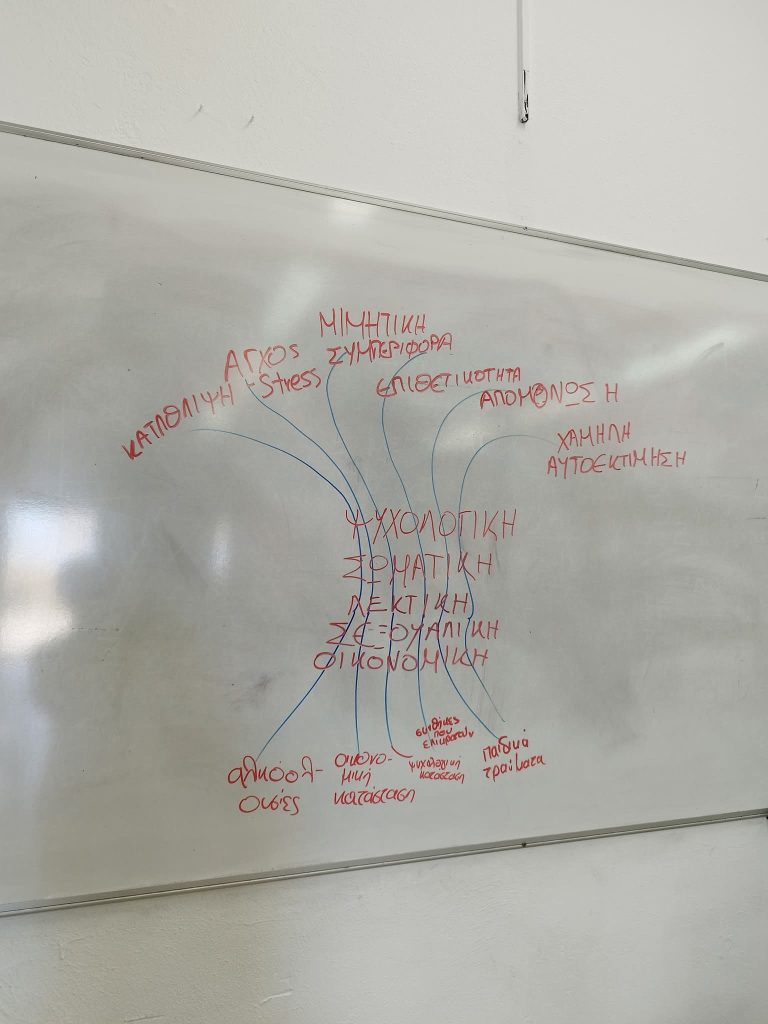 ΜΙΜΗΤΙΚΗ
ΣΥΜΠΕΡΙΦΟΡΑ
ΑΓΧΟΣ
-Stress
ΚΑΤΑΘΛΙΨΗ
ΕΠΙΘΕΤΙΚΟΤΗΤΑ
ΑΠΟΜΟΝΩΣΗ
ΧΑΜΗΛΗ
ΑΥΤΟΕΚΤΙΜΗΣΗ
ΨΥΧΟΛΟΓΙΚΗ
ΣΩΜΑΤΙΚΗ
ΛΕΚΤΙΚΗ
ΣΕΞΟΥΑΛΙΚΗ
ΟΙΚΟΝΟΜΙΚΗ
αλκόολ-
ουσίες
οικονο-
μική
κατάσταση
ψυχολογική
κατάσταση
συνθήκες
που
επικρατούν
παιδικά
τραύματα